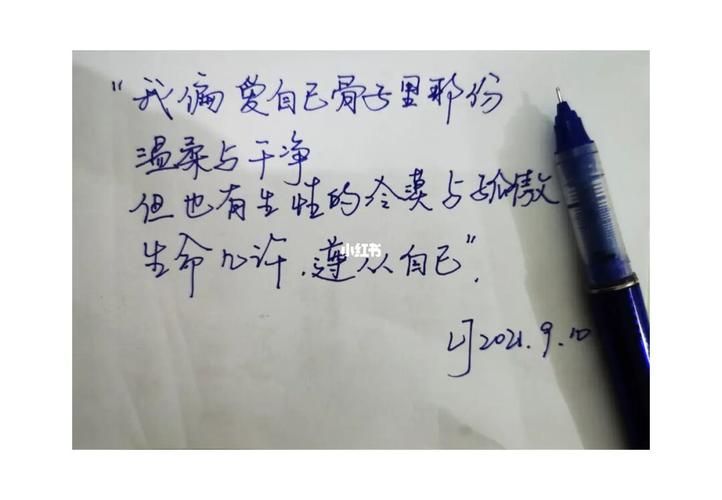 "我偏爱自己骨子里那份
温柔与干净
但也有生性的冷漠与骄傲
小红书
生命几许,遵从自己".
2021.9.10